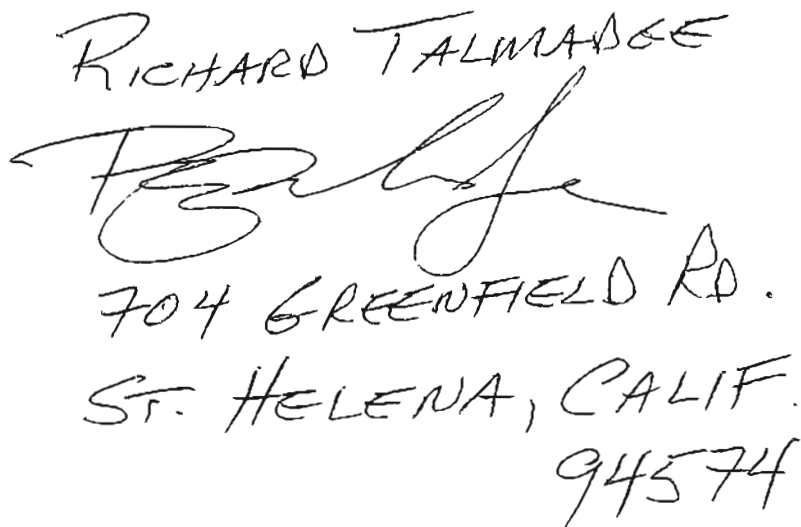 RICHARD TALMADGE
704 GREENFIELD RD.
ST. HELENA, CALIF.
94574